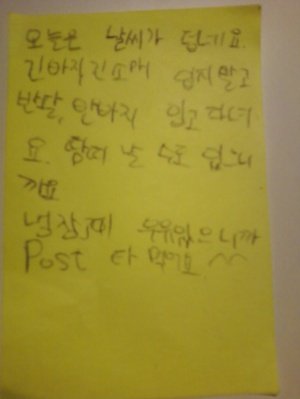 오늘은 날씨가 덥네요.
긴바지긴소매 입지말고
반팔, 반바지 입고 다녀
요. 땀띠 날 수도 있으니
까요
냉장고에 우유있으니까
Post 타 먹어요 ^^